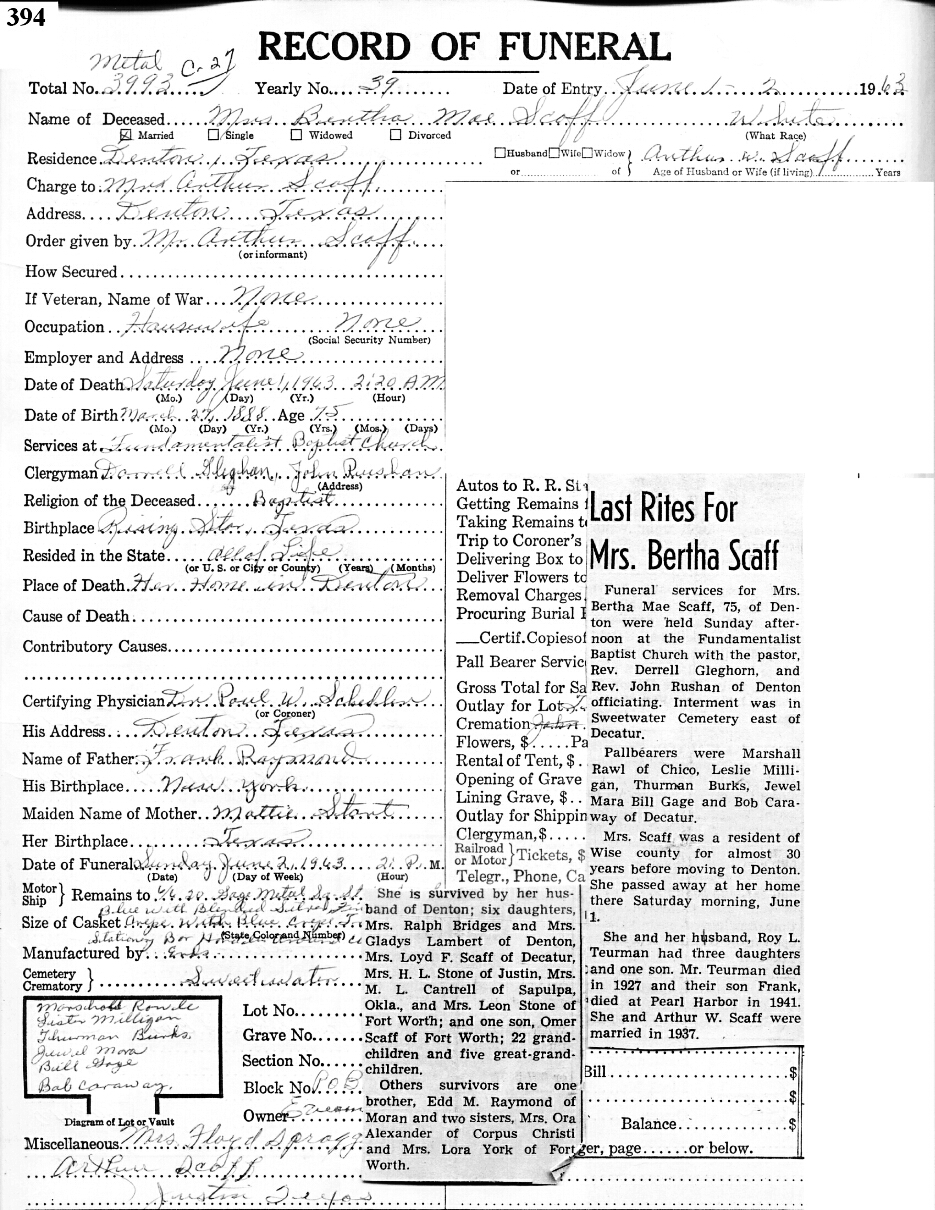 394
RECORD OF FUNERAL
Metal
Total No. 3993 Yearly No. 39 Date of Entry June 1 - 2 1963
Name of Deceased Mrs Bertha Mae Scaff White
Married Single Widowed Divorced (What Race)
Residence Denton, Texas Husband Wife Widow } Arthur W. Scaff
or of Age of Husband or Wife (if living) Years
Charge to Mrs Arthur Scaff
Address Denton Texas
Order given by Mr Arthur Scaff
(or informant)
How Secured
If Veteran, Name of War None
Occupation Housewife None
(Social Security Number)
Employer and Address None
Date of Death Saturday June 1, 1963 2:20 A.M
(Mo.) (Day) (Yr.) (Hour)
Date of Birth March 27, 1888 Age 75
(Mo.) (Day) (Yr.) (Yrs.) (Mos.) (Days)
Services at Fundamentalist Baptist Church
Clergyman Darrell Gleghan, John Rushan
(Address)
Religion of the Deceased Baptist
Birthplace Rising Star, Texas
Resided in the State all of Life
(or U. S. or City or County) (Years) (Months)
Place of Death Her Home in Denton
Cause of Death
Contributory Causes
Certifying Physician Dr. Paul W.
(or Coroner)
His Address Denton Texas
Name of Father Frank Raymond
His Birthplace New York
Maiden Name of Mother Mattie
Her Birthplace Texas
Date of Funeral Sunday June 2, 1963 2 P. M.
(Date) (Day of Week) (Hour)
Motor Ship } Remains to 6/6 20 Gage Metal
Blue With
Size of Casket With Blue
(State Color and Number)
Manufactured by
Cemetery
Crematory } Sweetwater
Marshall Rawle
Lester Milligan
Thurman Burks
Jewel Mora
Bill Gage
Bob Caraway.
Diagram of Lot or Vault
Lot No.
Grave No.
Section No.
Block No.
Owner
Miscellaneous Mrs. Floyd
Arthur Scaff
Justin Texas
Autos to R. R. St
Getting Remains
Taking Remains t
Trip to Coroner's
Delivering Box to
Deliver Flowers to
Removal Charges
Procuring Burial
Certif. Copies of
Pall Bearer Servic
Gross Total for Sa
Outlay for Lot
Cremation
Flowers, $ Pa
Rental of Tent, $
Opening of Grave
Lining Grave, $
Outlay for Shippin
Clergyman, $
Railroad
or Motor } Tickets, $
Telegr., Phone, Ca
Last Rites For
Mrs. Bertha Scaff
Funeral services for Mrs.
Bertha Mae Scaff, 75, of Den-
ton were held Sunday after-
noon at the Fundamentalist
Baptist Church with the pastor,
Rev. Derrell Gleghorn, and
Rev. John Rushan of Denton
officiating. Interment was in
Sweetwater Cemetery east of
Decatur.
Pallbearers were Marshall
Rawl of Chico, Leslie Milli-
gan, Thurman Burks, Jewel
Mara Bill Gage and Bob Cara-
way of Decatur.
Mrs. Scaff was a resident of
Wise county for almost 30
years before moving to Denton.
She passed away at her home
there Saturday morning, June
1.
She and her husband, Roy L.
Teurman had three daughters
and one son. Mr. Teurman died
in 1927 and their son Frank,
died at Pearl Harbor in 1941.
She and Arthur W. Scaff were
married in 1937.
She is survived by her hus-
band of Denton; six daughters,
Mrs. Ralph Bridges and Mrs.
Gladys Lambert of Denton,
Mrs. Loyd F. Scaff of Decatur,
Mrs. H. L. Stone of Justin, Mrs.
M. L. Cantrell of Sapulpa,
Okla., and Mrs. Leon Stone of
Fort Worth; and one son, Omer
Scaff of Fort Worth; 22 grand-
children and five great-grand-
children.
Others survivors are one
brother, Edd M. Raymond of
Moran and two sisters, Mrs. Ora
Alexander of Corpus Christi
and Mrs. Lora York of Fort
Worth.
Bill $
$
Balance $
ger, page or below.